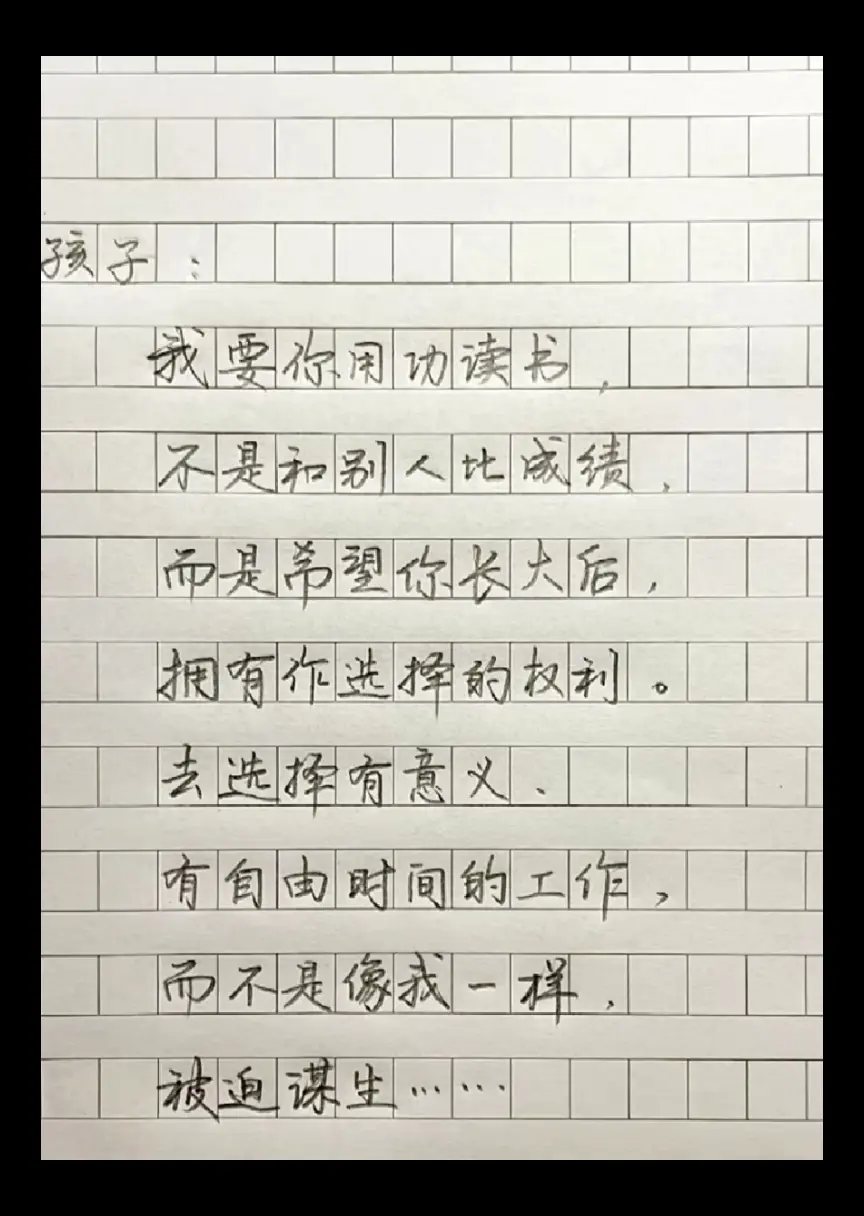 孩子：
我要你用功读书，
不是和别人比成绩，
而是希望你长大后，
拥有作选择的权利。
去选择有意义、
有自由时间的工作，
而不是像我一样，
被迫谋生……